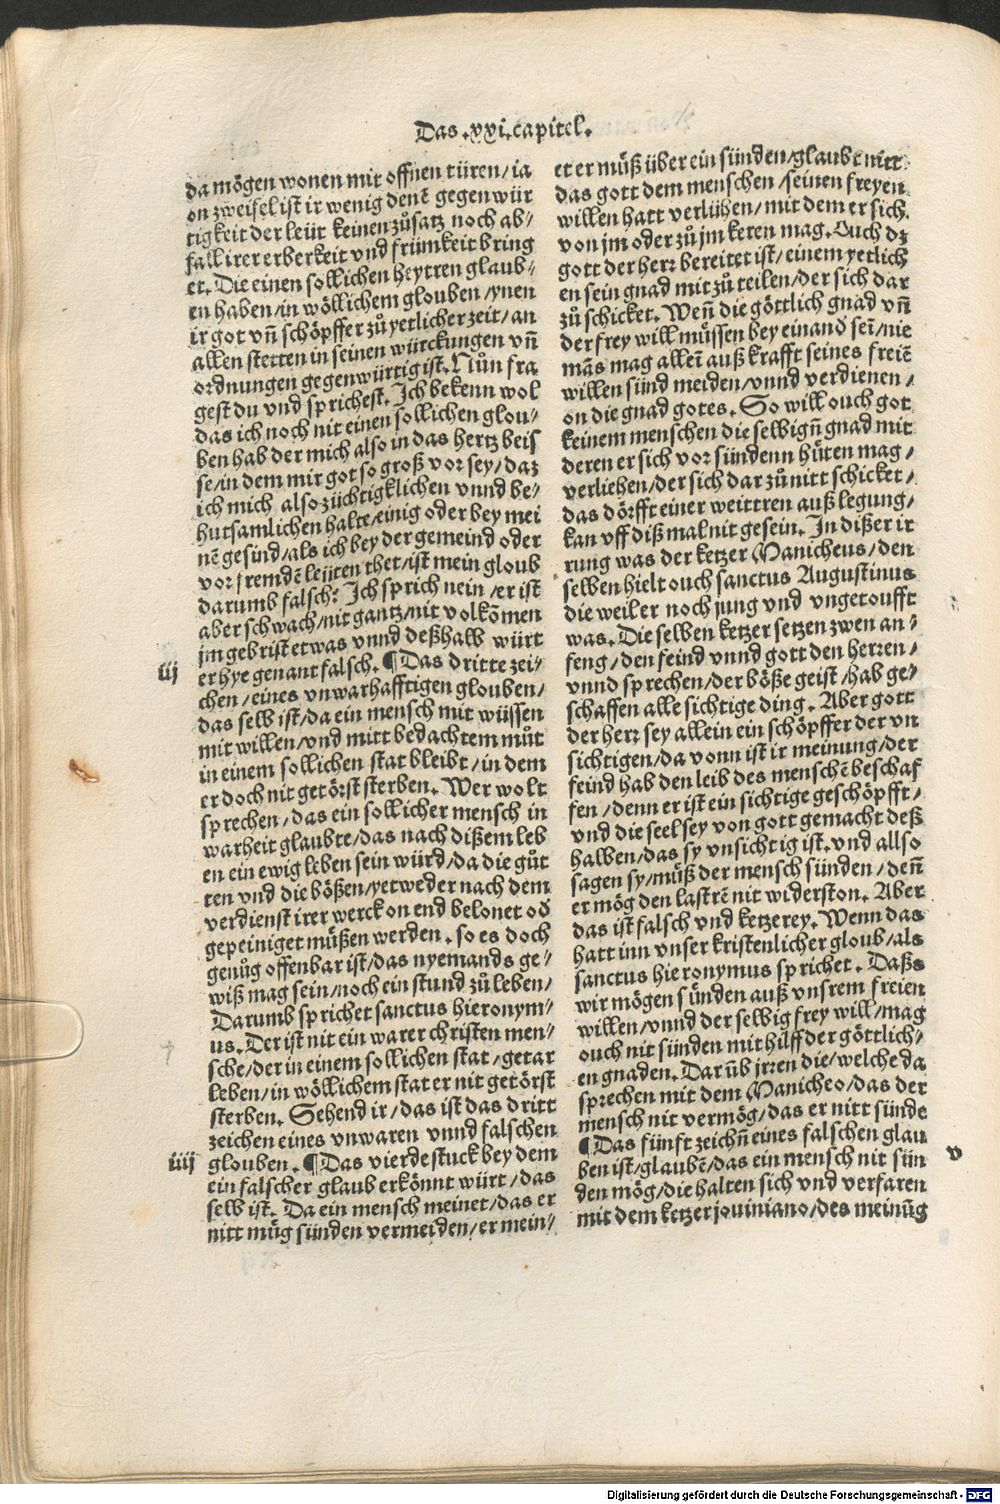 Das .xxi. capitel.
da mögen wonen mit offnen türen/ ia
on zweifel ist ir wenig denẽ gegenwür
tigkeit der leüt keinen zůsatz noch ab⸗
fall irer erberkeit vnd frümkeit bring
et. Die einen sollichen heytren glaub⸗
en haben/ in wöllichem glouben /ynen
ir got vñ schöpffer zů yetlicher zeit/ an
allen stetten in seinen würckungen vñ
ordnungen gegenwürtig ist. Nůn fra
gest du vnd sprichest. Ich bekenn wol
das ich noch nit einen sollichen glou⸗
ben hab der mich also in das hertz beis
se/ in dem mir got so groß vor sey/ daz
ich mich also züchtigklichen vnnd be⸗
hutsamlichen halte/ einig oder bey mei
nẽ gesind/ als ich bey der gemeind oder
vor fremdẽ leüten thet/ ist mein gloub
darumb falsch? Ich sprich nein /er ist
aber schwach/ nit gantz/ nit volkõmen
jm gebrist etwas vnnd deßhalb würt
iij
er hye genant falsch. ¶ Das dritte zei⸗
chen/ eines vnwarhafftigen glouben/
das selb ist/ da ein mensch mit wüssen
mit willen/ vnd mitt bedachtem můt
in einem sollichen stat bleibt/ in dem
er doch nit getörst sterben. Wer wolt
sprechen/ das ein sollicher mensch in
warheit glaubte/ das nach dißem leb
en ein ewig leben sein würd/ da die gůt
ten vnd die bößen/ yetweder nach dem
verdienst irer werck on end belonet oď
gepeiniget müßen werden. so es doch
genůg offenbar ist/ das nyemands ge⸗
wiß mag sein/ noch ein stund zů leben/
Darumb sprichet sanctus hieronym⸗
us. Der ist nit ein warer christen men⸗
sche/ der in einem sollichen stat /getar
leben/ in wöllichem stat er nit getörst
sterben. Sehend ir/ das ist das dritt
zeichen eines vnwaren vnnd falschen
iiij
glouben. ¶ Das vierde stuck bey dem
ein falscher glaub erkönnt würt/ das
selb ist. Da ein mensch meinet/ das er
nitt müg sünden vermeiden/ er mein⸗
et er müß über ein sünden/ glaubt nitt
das gott dem menschen /seinen freyen
willen hatt verlühen/ mit dem er sich
von jm oder zů jm keren mag. Ouch dz
gott der herr bereitet ist/ einem yetlich
en sein gnad mit zů teilen/ der sich dar
zů schicket. Weñ die göttlich gnad vñ
der frey will müssen bey einand seĩ/ nie
mãs mag alleĩ auß krafft seines freiẽ
willen sünd meiden/ vnnd verdienen/
on die gnad gotes. So will ouch got
keinem menschen die selbigñ gnad mit
deren er sich vor sündenn hüten mag/
verliehen/ der sich dar zů nitt schicket/
das dörfft einer weittren auß legung/
kan vff diß mal nit gesein. In dißer ir
rung was der ketzer Manicheus/ den
selben hielt ouch sanctus Augustinus
die weil er noch jung vnd vngetoufft
was. Die selben ketzer setzen zwen an⸗
feng/ den feind vnnd gott den herren/
vnnd sprechen/ der böße geist/ hab ge⸗
schaffen alle sichtige ding. Aber gott
der herr sey allein ein schöpffer der vn
sichtigen/ da vonn ist ir meinung/ der
feind hab den leib des menschẽ beschaf
fen/ denn er ist ein sichtige geschöpfft/
vnd die seel sey von gott gemacht deß
halben/ das sy vnsichtig ist. vnd allso
sagen sy/ müß der mensch sünden/ deñ
er mög den lastrẽ nit widerston. Aber
das ist falsch vnd ketzerey. Wenn das
hatt inn vnser kristenlicher gloub/ als
sanctus hieronymus sprichet. Daßs
wir mögen sünden auß vnsrem freien
willen/ vnnd der selbig frey will/ mag
ouch nit sünden mit hilff der göttlich⸗
en gnaden. Darũb jrren die/ welche da
sprechen mit dem Manicheo/ das der
mensch nit vermög/ das er nitt sünde
¶ Das fünft zeichñ eines falschen glau
v
ben ist/ glaubẽ/ das ein mensch nit sün
den mög/ die halten sich vnd verfaren
mit dem ketzer jouiniano/ des meinũg
Digitalisierung gefördert durch die Deutsche Forschungsgemeinschaft - DFG